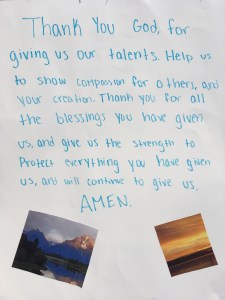 Thank You God, for
giving us our talents. Help us
to show compassion for others, and
your creation. Thank you for all
the blessings you have given
us, and give us the strength to
Protect everything you have given
us, and will continue to give us.
AMEN.